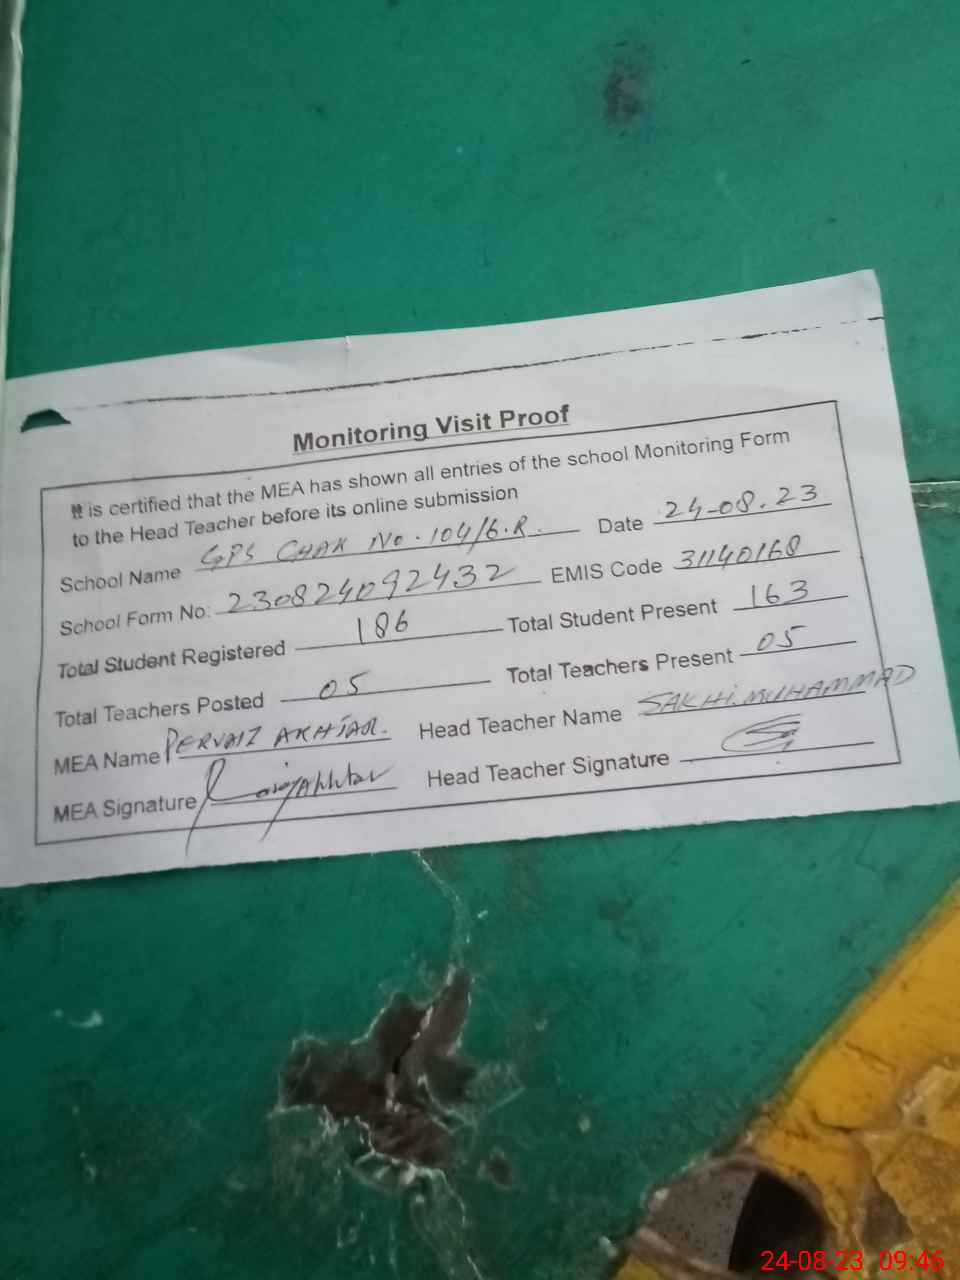 Monitoring Visit Proof
It is certified that the MEA has shown all entries of the school Monitoring Form
to the Head Teacher before its online submission
School Name GPS CHAK No. 104/6.R. Date 24-08.23
School Form No: 230824092432 EMIS Code 31140168
Total Student Registered 186 Total Student Present 163
Total Teachers Posted 05 Total Teachers Present 05
MEA Name PERVAIZ AKHTAR. Head Teacher Name SAKHI.MUHAMMAD
MEA Signature Head Teacher Signature
24-08-23 09:45